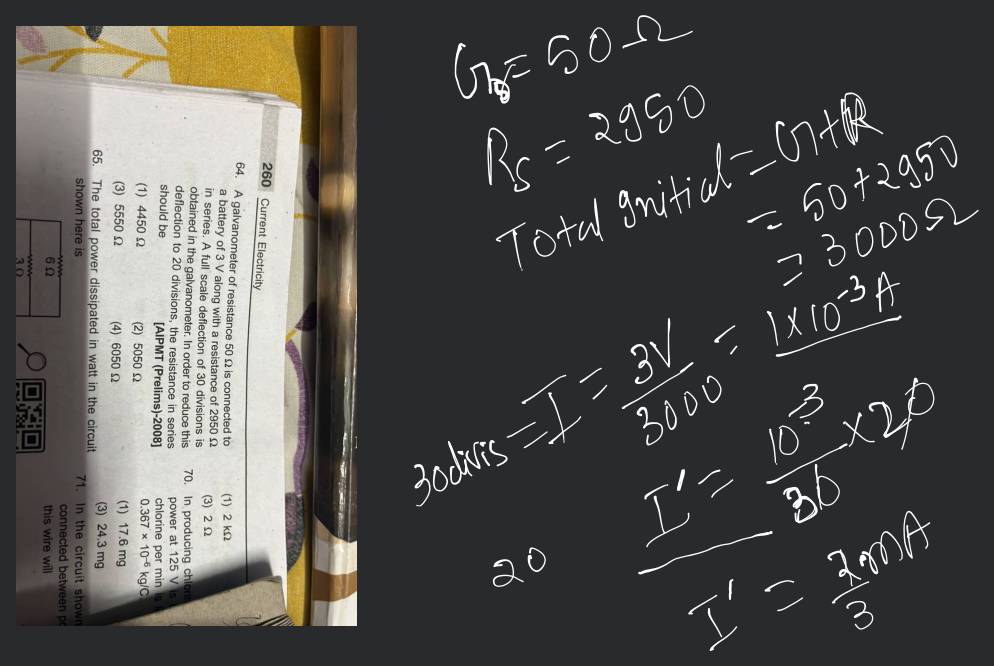 260 Current Electricity
64. A galvanometer of resistance 50 Ω is connected to
a battery of 3 V along with a resistance of 2950 Ω
in series. A full scale deflection of 30 divisions is
obtained in the galvanometer. In order to reduce this
deflection to 20 divisions, the resistance in series
should be
[AIPMT (Prelims)-2008]
(1) 4450 Ω (2) 5050 Ω
(3) 5550 Ω (4) 6050 Ω
65. The total power dissipated in watt in the circuit
shown here is
6 Ω
3 Ω
(1) 2 kΩ
(3) 2 Ω
70. In producing
power at 125 V is
chlorine per min is
0.367 × 10⁻⁶ kg/C
(1) 17.6 mg
(3) 24.3 mg
71. In the circuit shown
connected between
this wire will
G = 50 Ω
Rs = 2950
Total gnitial = G+R
= 50+2950
= 3000 Ω
30 divis = I = 3V/3000 = 1×10⁻³ A
I' = 10⁻³/30 × 20
20
I' = 2/3 mA